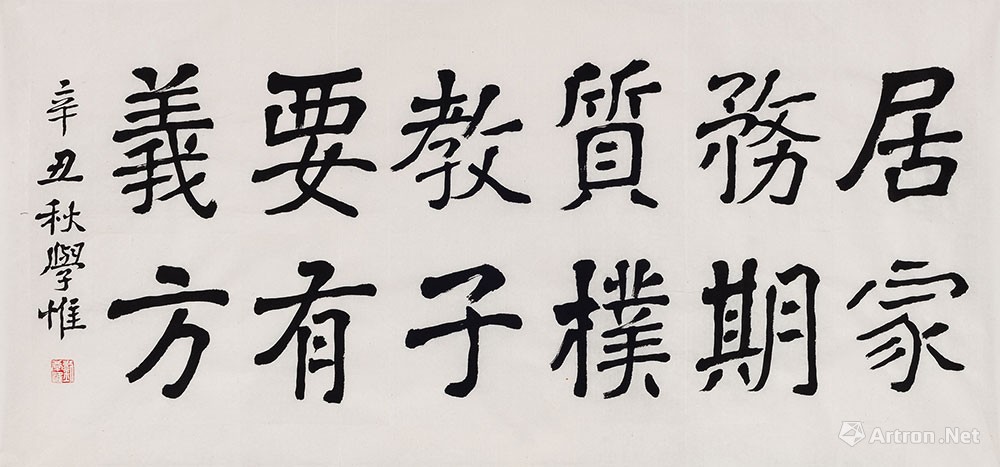 居家
務期
質樸
教子
要有
義方
辛丑秋學惟
Artron.Net